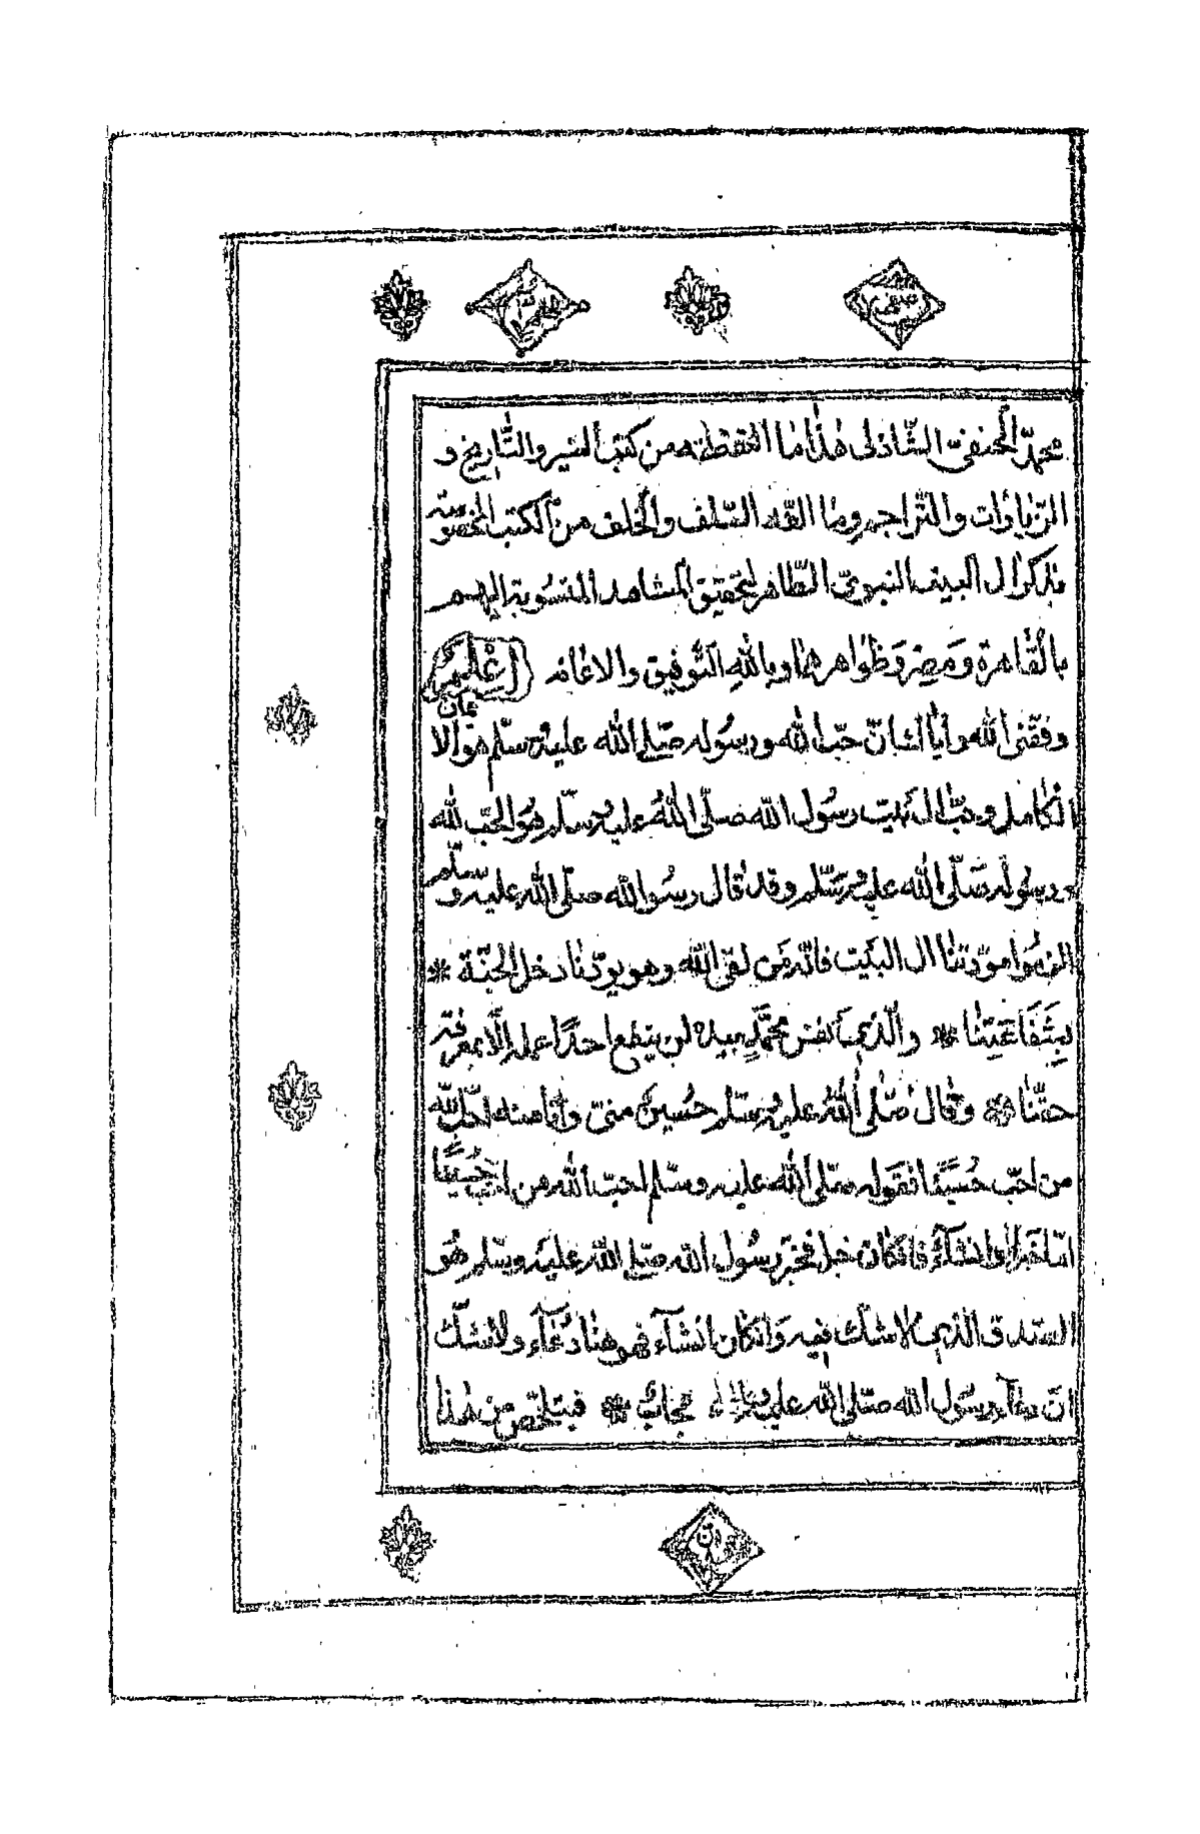 محمّد الحنفىّ الشّاذلى هٰذا ما التقطته من كتب السّير والتّاريخ و
الزّيارات والتّراجم وما الّفه السّلف والخلف من الكتب المخصوصة
بذكر ال البيت النبوىّ الطّاهر لتحقيق المشاهد المنسوبة اليهم
بالقاهرة وَمصر وَظواهرها وبالله التّوفيق والاعانه اعْلم
وفقنى الله وايّاك بانّ حبّ الله ورسُوله صلّى الله عليه وسلّم هو الايمان
الكامل وحبّ ال بَيت رسُول الله صلّى اللهُ عليه وسلّم هُو الحبّ لله
ورسُوله صَلّى الله عليه وَسَلّم وقد قال رسُول الله صلّى الله عليه وسلّم
الزمُوا مودّتنا ال البَيت فانّه مَن لقى الله وهو يودّنا دخل الجنّة *
بِشَفَاعَتِنا * والّذى نفس محمّدٍ بيده لن ينفع احدًا عمله الّا بمعرفة
حقّنا * وقال صَلّى اللهُ عليه وسلم حُسين منىّ وأنا منه احبّ الله
من احبّ حُسينًا فقوله صلّى الله عليه وسلّم احبّ الله من احبّ حُسينًا
امّا خبر او انشآء فان كان خبر فخبر رسُول الله صلّى الله عليه وسلم هُو
الصّدق الّذى لا شك فيه وَان كان انشآء فهو هنا دُعآء ولا شكّ
انّ دعآء رسُول الله صلّى الله عليه وسلم مجابٌ * فيتلخّص من هٰذا